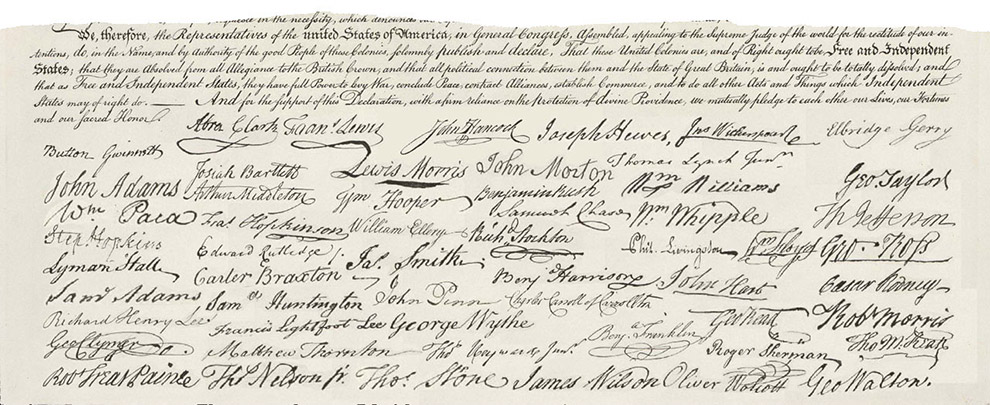 in the necessity, which denounces our
We, therefore, the Representatives of the united States of America, in General Congress, Assembled, appealing to the Supreme Judge of the world for the rectitude of our in-
tentions, do, in the Name, and by authority of the good People of these Colonies, solemnly publish and declare, That these United Colonies are, and of Right ought to be, Free and Independent
States; that they are Absolved from all Allegiance to the British Crown, and that all political connection between them and the State of Great Britain, is and ought to be totally dissolved; and
that as Free and Independent States, they have full Power to levy War, conclude Peace, contract Alliances, establish Commerce, and to do all other Acts and Things which Independent
States may of right do. — And for the support of this Declaration, with a firm reliance on the Protection of divine Providence, we mutually pledge to each other our Lives, our Fortunes
and our Sacred Honor.
Abra Clark Fran.s Lewis John Hancock Joseph Hewes, Jno Witherspoon Elbridge Gerry
Button Gwinnett Josiah Bartlett Lewis Morris John Morton Thomas Lynch Jun.r
John Adams Arthur Middleton Wm Hooper Benjamin Rush Wm Williams Geo Taylor
Wm Paca Fra.s Hopkinson William Ellery Samuel Chase Wm Whipple Th Jefferson
Step. Hopkins Edward Rutledge /. Rich.d Stockton Phil. Livingston Geo. Ross
Lyman Hall Carter Braxton Ja.s Smith Benj.a Harrison John Hart Cæsar Rodney
Sam.l Adams Sam.el Huntington John Penn Charles Carroll of Carrollton
Richard Henry Lee Francis Lightfoot Lee George Wythe Benj.a Franklin Geo Read Rob.t Morris
Geo Clymer Matthew Thornton Tho.s Heyward Jun.r Roger Sherman Tho M. Kean
Rob.t Treat Paine Tho.s Nelson jr. Tho.s Stone James Wilson Oliver Wolcott Geo Walton.